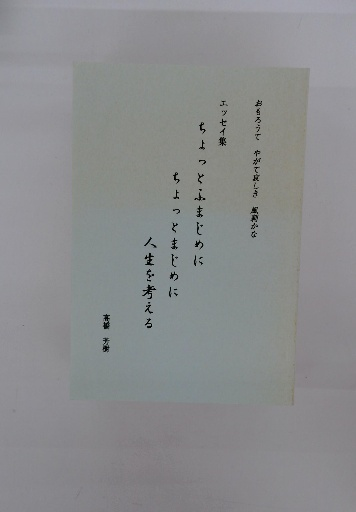 おもろうて やがて哀しき 風商かな
エッセイ集
ちょっとふまじめに
ちょっとまじめに
人生を考える
高橋 芳樹